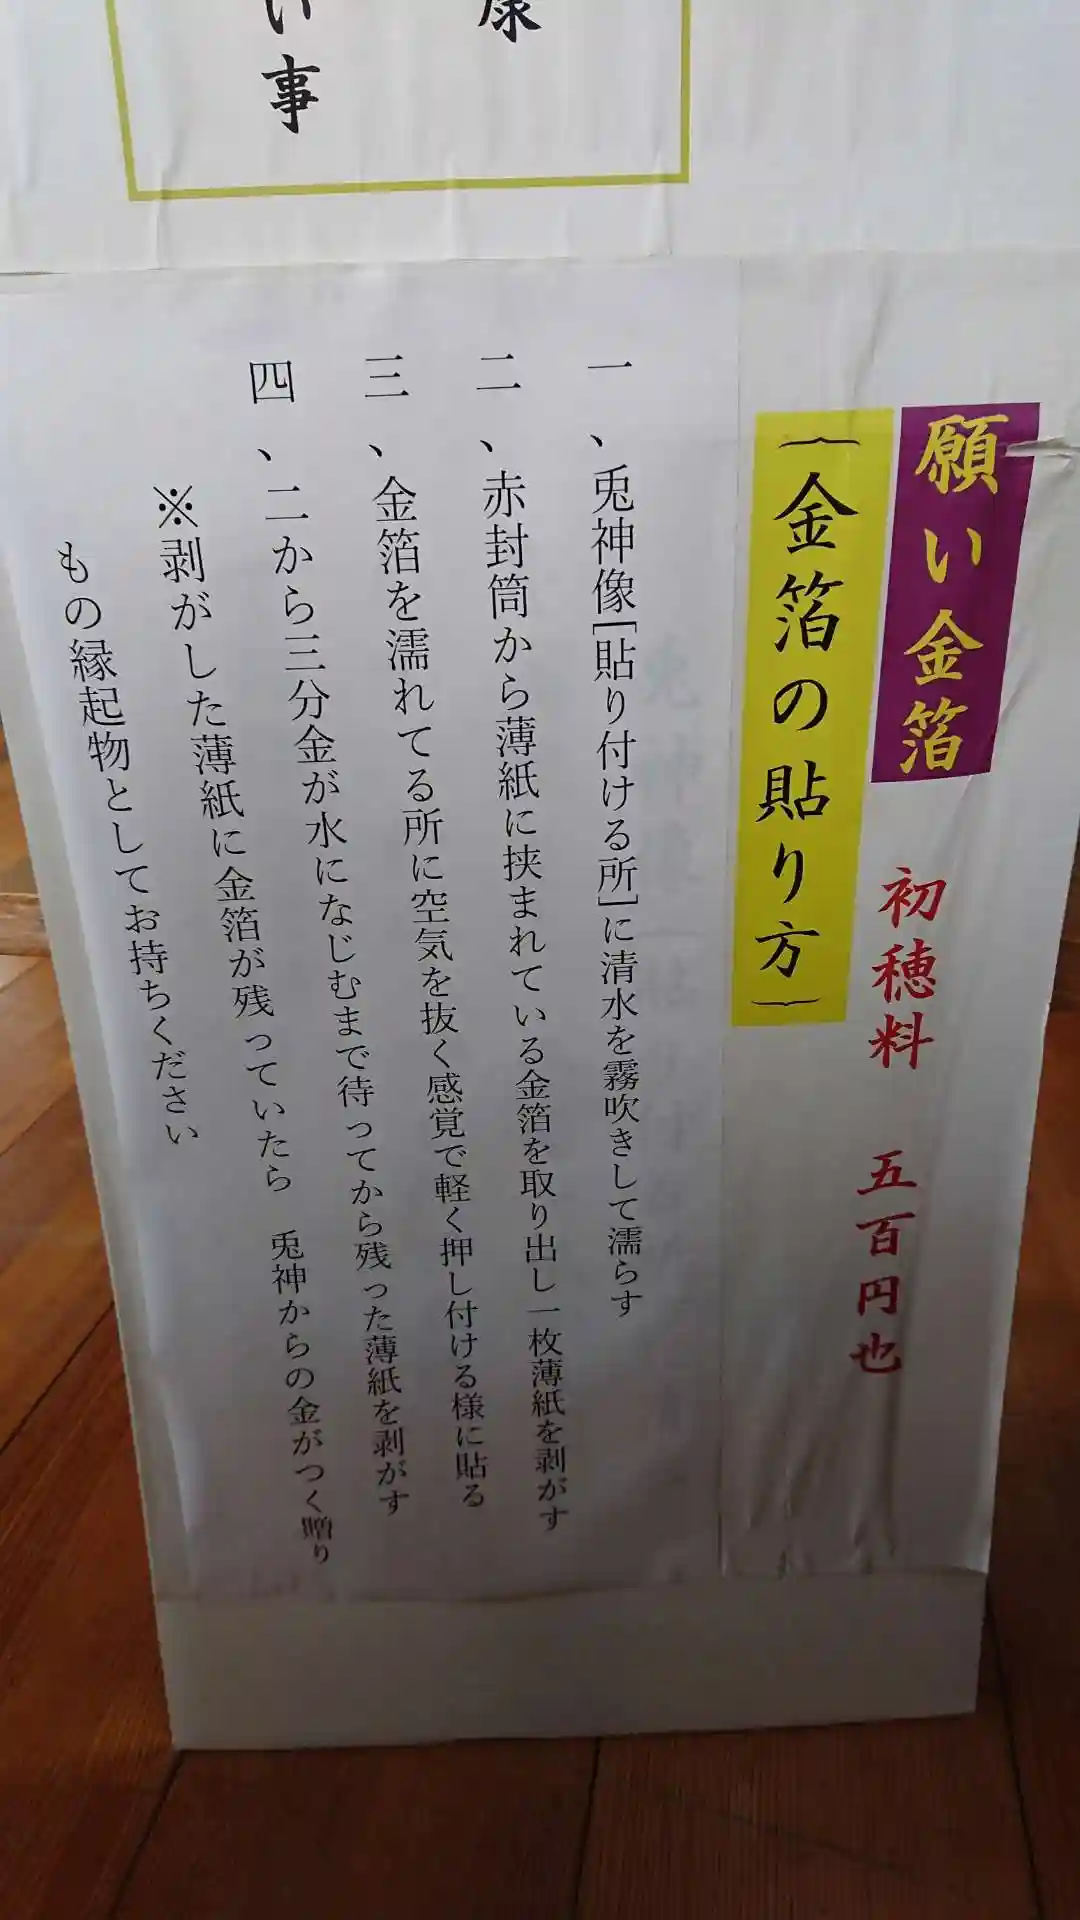 康
い事
願い金箔　初穂料　五百円也
(金箔の貼り方)
一、兎神像[貼り付ける所]に清水を霧吹きして濡らす
二、赤封筒から薄紙に挟まれている金箔を取り出し一枚薄紙を剥がす
三、金箔を濡れてる所に空気を抜く感覚で軽く押し付ける様に貼る
四、二から三分金が水になじむまで待ってから残った薄紙を剥がす
※剥がした薄紙に金箔が残っていたら　兎神からの金がつく贈り
もの縁起物としてお持ちください